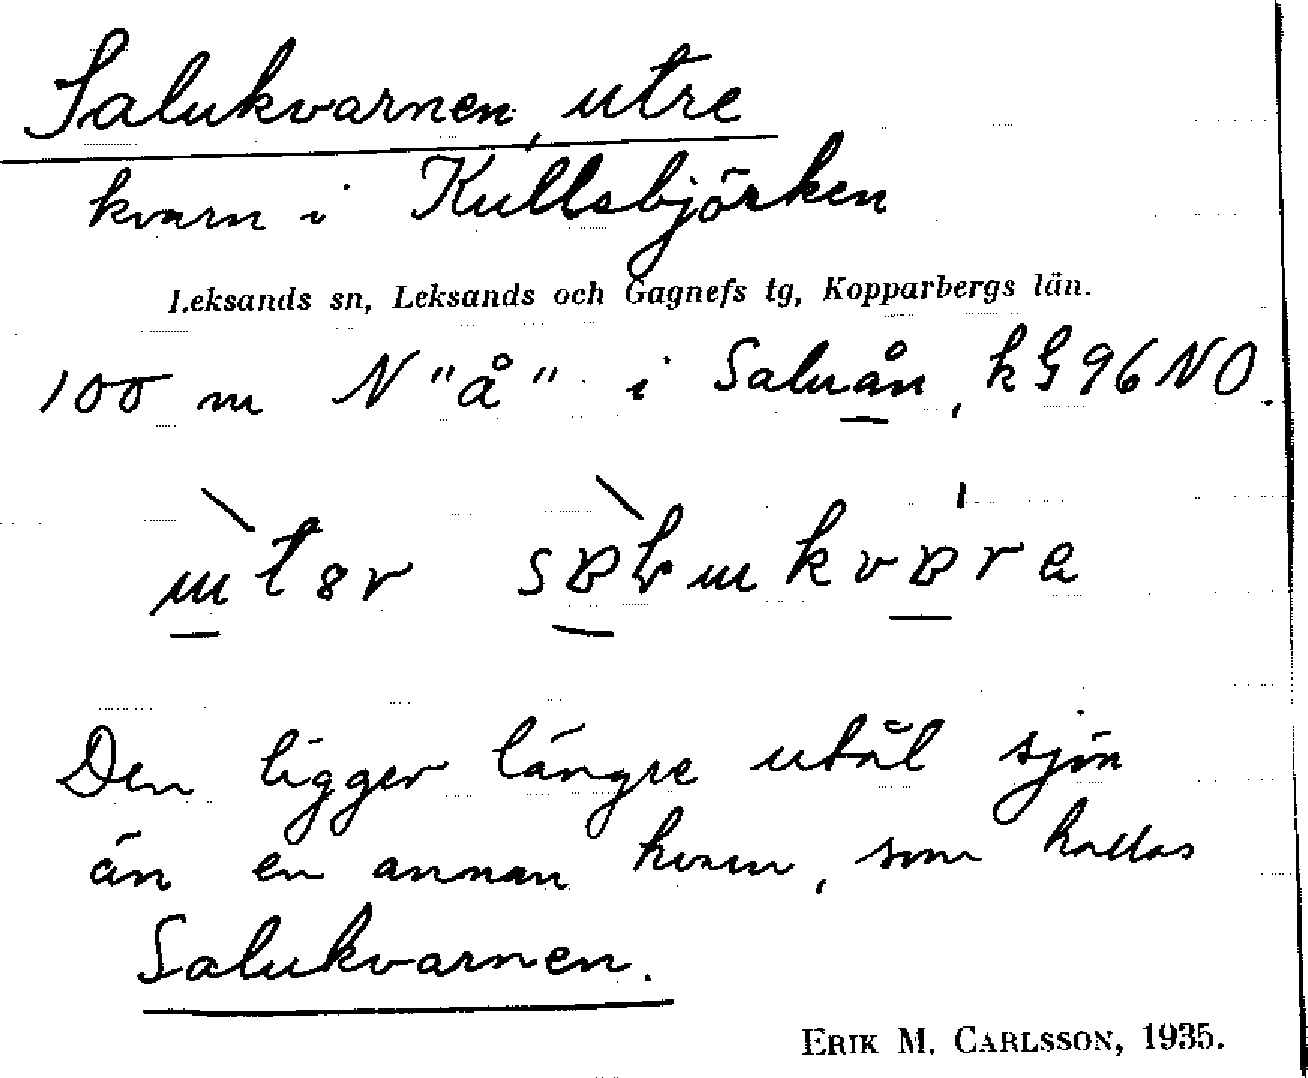 Salukvarnen, utre
kvarn i Kullsbjörken
Leksands sn, Leksands och Gagnefs tg, Kopparbergs län.
100 m N "å" i Saluån, k G 96 NO.
Den ligger längre utåt sjön
än en annan kvarn, som kallas
Salukvarnen.
ERIK M. CARLSSON, 1935.